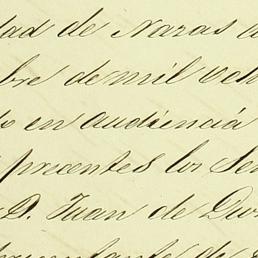 dad de Nazas a
bre de mil och
o en audiencia
presentes los Señ
D. Juan de Dio
de